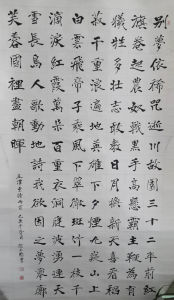 別夢依稀咒逝川故園三十二年前紅
旗卷起農奴戟黑手高懸霸主鞭為有
犧牲多壯志敢教日月換新天喜看稻
菽千重浪遍地英雄下夕煙九嶷山上
白雲飛帝子乘風下翠微斑竹一枝千
滴淚紅霞萬朵百重衣洞庭波湧連天
雪長島人歌動地詩我欲因之夢寥廓
芙蓉國裡盡朝暉
毛澤東詩兩首